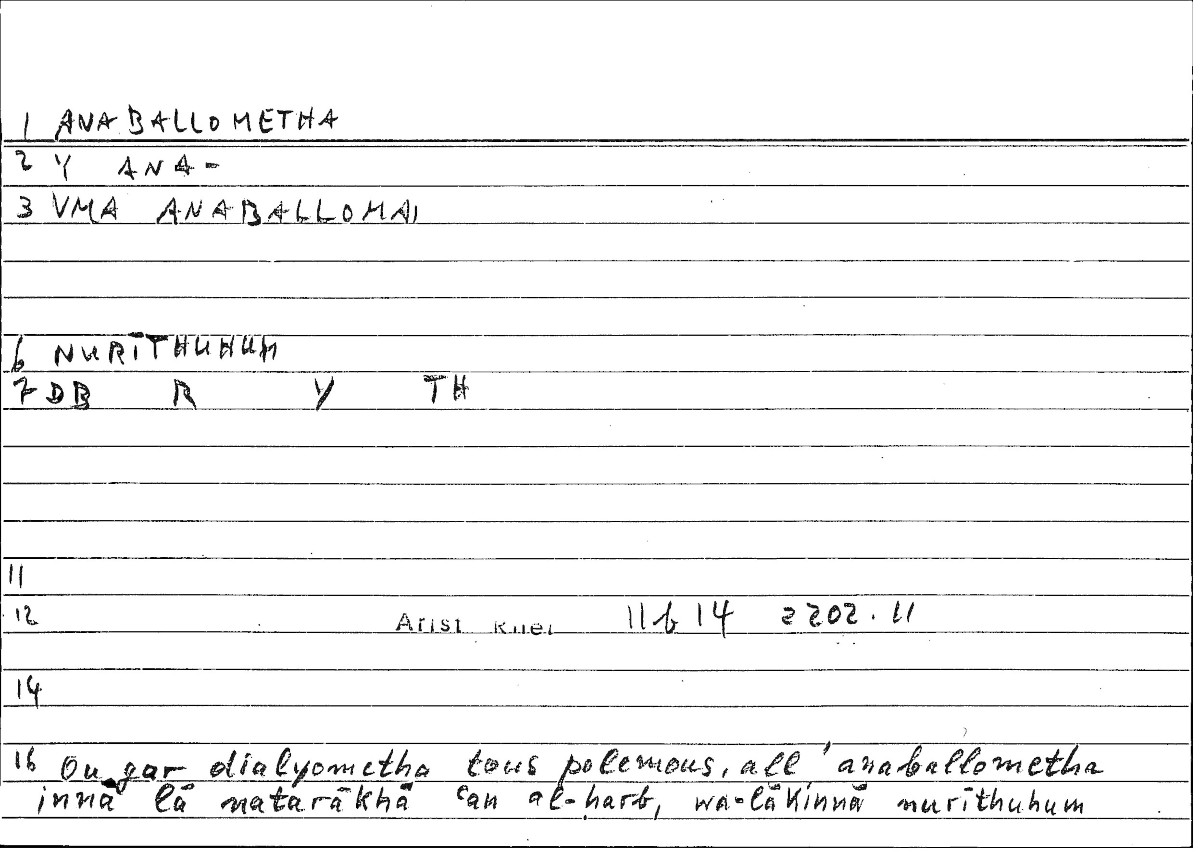 1 ANABALLOMETHA
2 Y ANA-
3 VMA ANABALLOMAI
6 NURĪTHUHUM
7 DB R Y TH
11
12 Arist Rhet 11b14 2202.11
14
16 Ou gar dialyometha tous polemous, all' anaballometha
innā lā natarākhā ʿan al-ḥarb, wa-lākinnā nurīthuhum